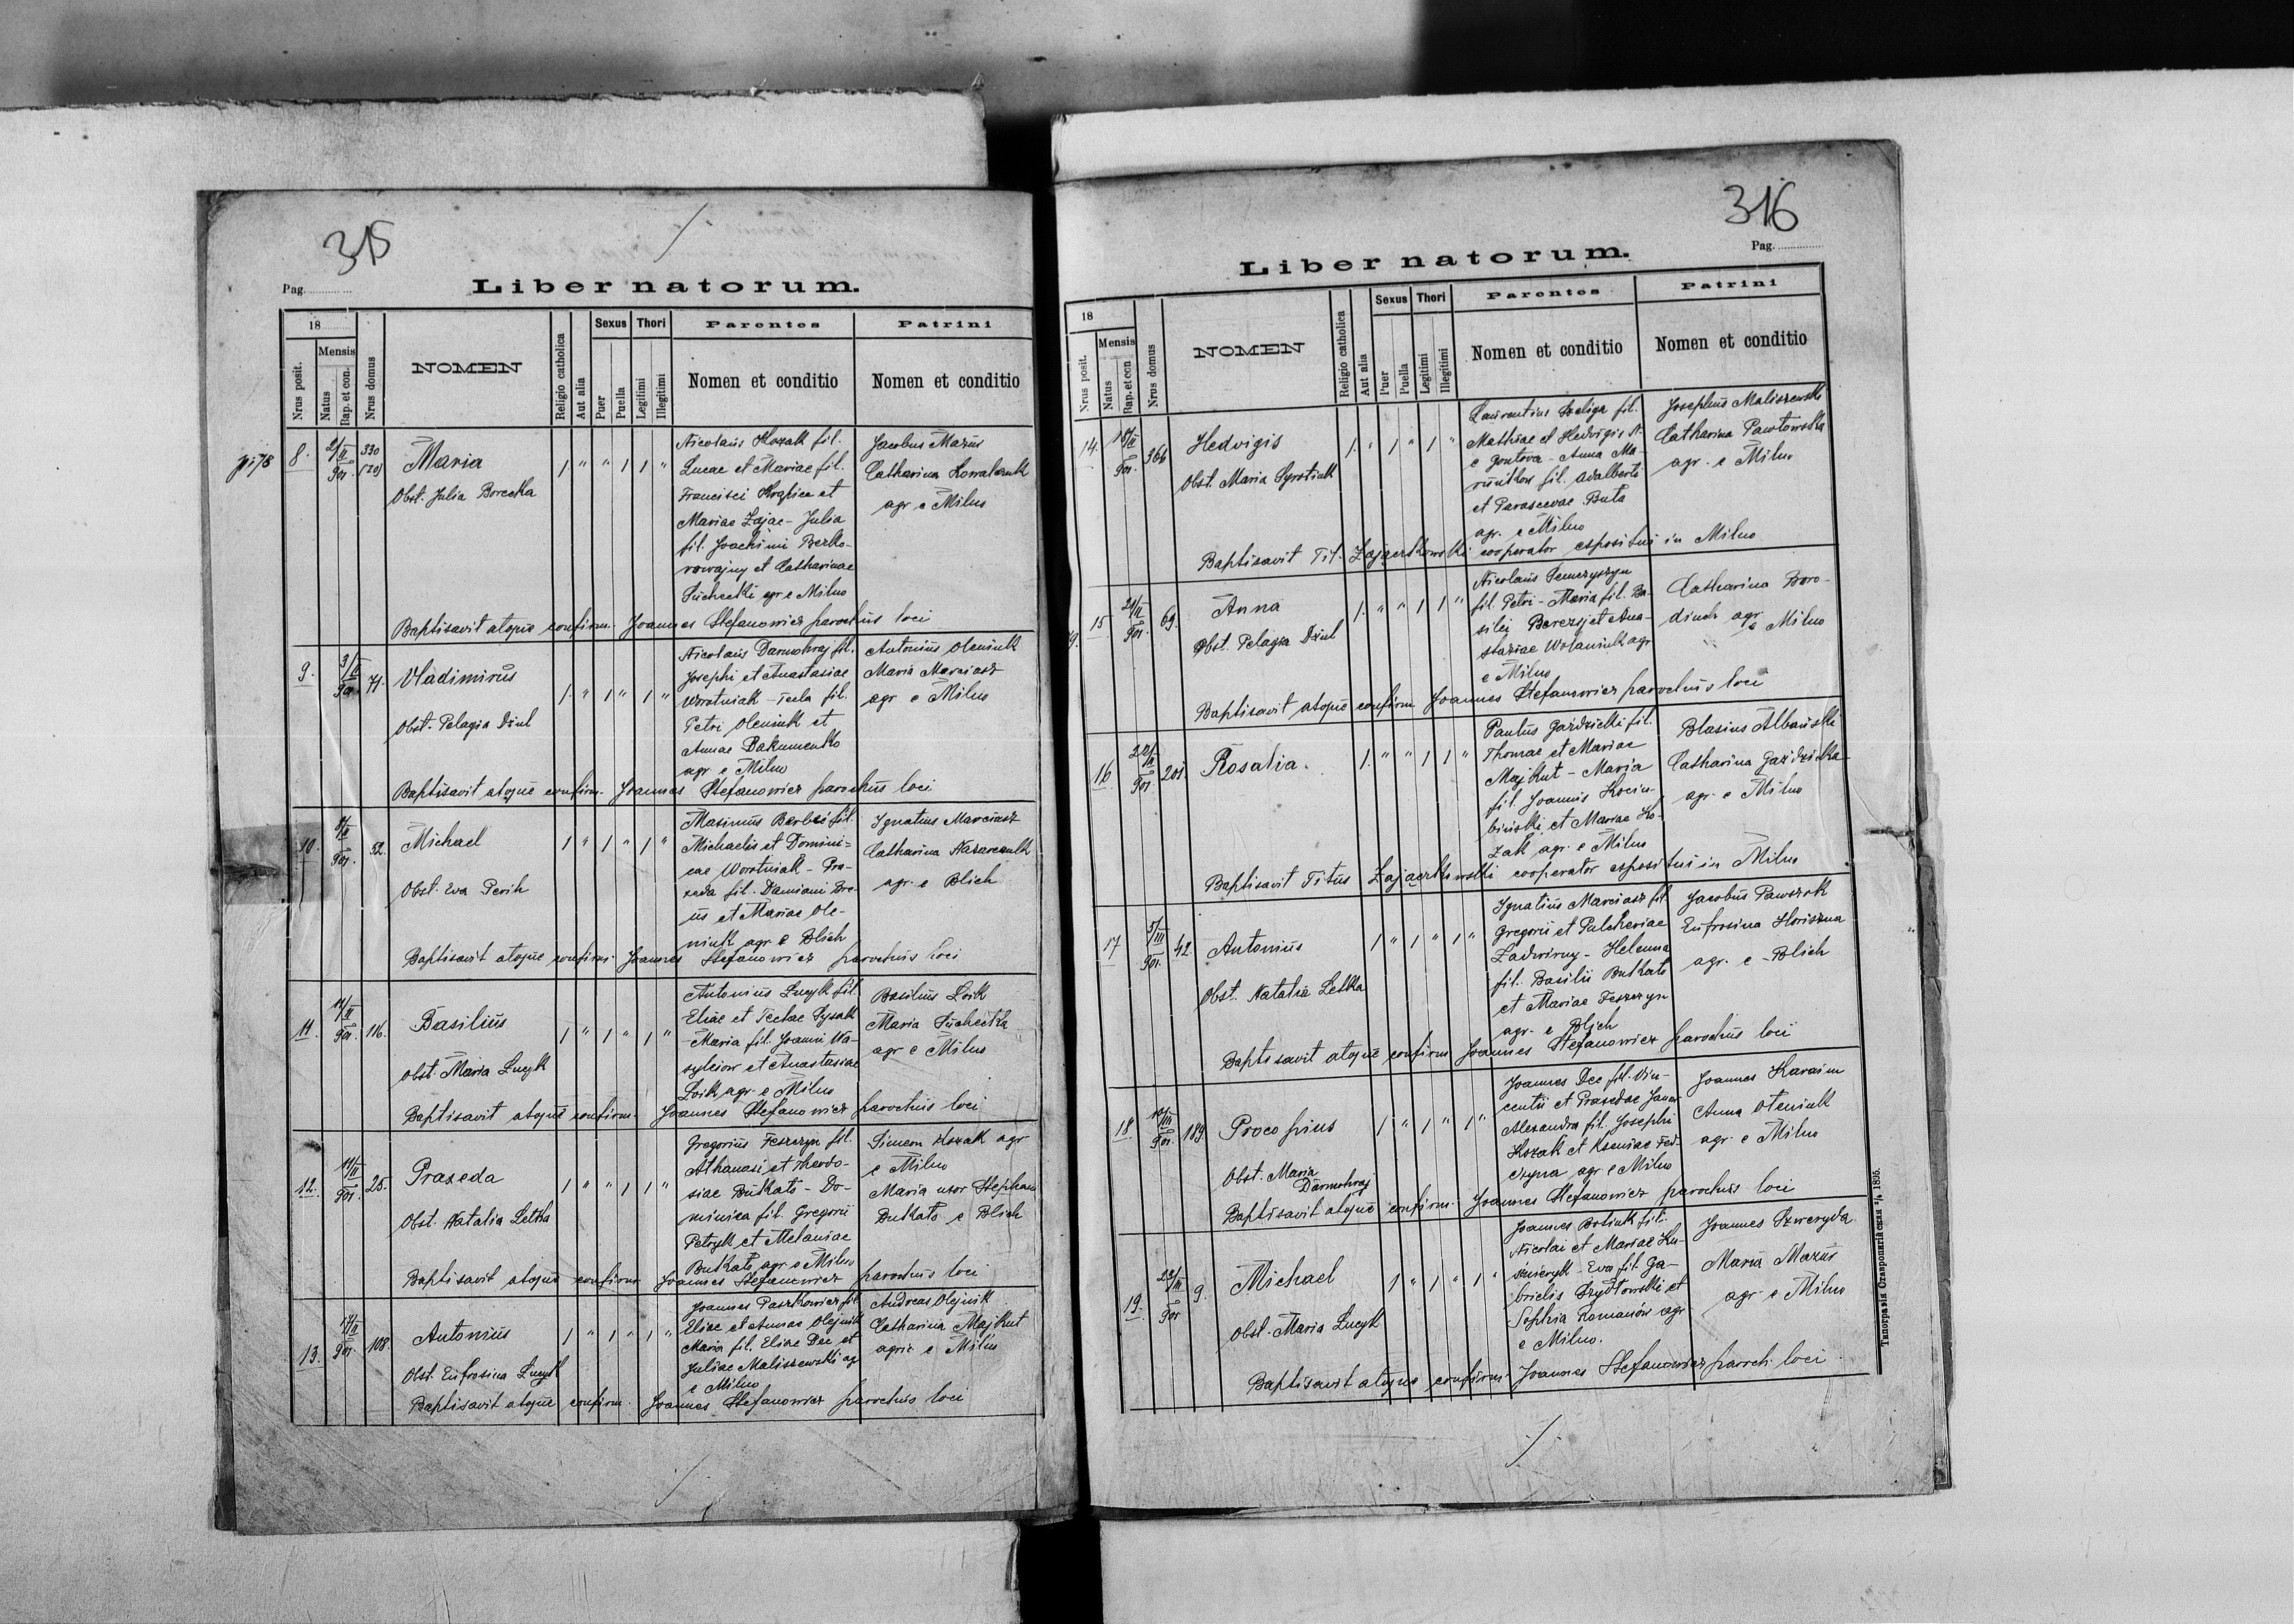 315
Pag.
Liber natorum.
18
Nrus posit.
Mensis
Natus
Bap. et con.
Nrus domus
NOMEN
Religio catholica
Aut alia
Sexus
Puer
Puella
Thori
Legitimi
Illegitimi
Parentes
Nomen et conditio
Patrini
Nomen et conditio
8. 2/II 901. 330 (20)
Maria
Obst. Julia Borecka
1 " " 1 1 "
Nicolaus Kozak fil.
Lucae et Mariae fil.
Francisci et
Mariae Zając - Julia
fil. Joachimi
et Catharinae
Suchecki agr e Milno
Jacobus Mazur
Catharina Kowalczuk
agr e Milno
Baptisavit atque confirm. Joannes Stefanowicz parochus loci
9. 3/II 901. 71.
Vladimirus
Obst. Pelagia Dziul
1. " 1 " 1 "
Nicolaus Darmohraj fil.
Josephi et Anastasiae
Worotniak - Tecla fil.
Petri Oleniuk et
Annae Bakumenko
agr e Milno
Antonius Oleniuk
Maria Marciasz
agr e Milno
Baptisavit atque confirm. Joannes Stefanowicz parochus loci
10. 901. 52.
Michael
Obst. Eva Perih
1 " 1 " 1 "
Maximus fil.
Michaelis et Domini=
cae Worotniak - Pra-
xeda fil. Damiani
et Mariae Ole-
niuk agr. e Blich
Ignatius Marciasz
Catharina Nazarczuk
agr. e Blich
Baptisavit atque confirm. Joannes Stefanowicz parochus loci
11. 11/II 901. 116.
Basilius
Obst. Maria Łucyk
1 " 1 " 1 "
Antonius Łucyk fil.
Eliae et Teclae Sysak
- Maria fil. Joanni Wa-
sylciow et Anastasiae
Łoik agr. e Milno
Basilius Łoik
Maria Suchecka
agr e Milno
Baptisavit atque confirm. Joannes Stefanowicz parochus loci
12. 11/II 901. 25.
Praxeda
Obst. Natalia Letka
1 " " 1 1 "
Gregorius Feszczyn fil.
Athanasi et Theodo-
siae Butkato - Do-
minica fil. Gregorii
Petryk et Melaniae
Butkato agr. e Milno
Simeon Kozak agr
e Milno
Maria uxor Stephani
Butkato e Blich
Baptisavit atque confirm Joannes Stefanowicz parochus loci
13. 17/II 901. 108.
Antonius
Obst. Eufrosina Łucyk
1 " 1 " 1 "
Joannes Paszkowicz fil
Eliae et Annae Olejnik
Maria fil. Eliae Dec et
Juliae Maliszewski agr
e Milno
Andreas Olejnik
Catharina Majkut
agric e Milno
Baptisavit atque confirm. Joannes Stefanowicz parochus loci
316
Pag.
Liber natorum.
18
Nrus posit.
Mensis
Natus
Bap. et con
Nrus domus
NOMEN
Religio catholica
Aut alia
Sexus
Puer
Puella
Thori
Legitimi
Illegitimi
Parentes
Nomen et conditio
Patrini
Nomen et conditio
14. 901. 366
Hedvigis
Obst. Maria Syrotiuk
1. " 1 " 1 "
Laurentius Szeliga fil.
Mathiae et Hedvigis
e Gontova - Anna Ma-
fil. Adalberti
et Parascevae Buta
agr. e Milno
Josephus Maliszewski
Catharina Pawłowska
agr. e Milno
Baptisavit Tit. Zajączkowski cooperator expositus in Milno
15 901. 69.
Anna
Obst. Pelagia Dziul
1. " " 1 1 "
Nicolaus Semczyszyn
fil. Petri - Maria fil. Ba-
silii et Ana-
stasiae Wołaniuk agr
e Milno
Catharina Boro-
diuch agr.
e Milno
Baptisavit atque confirm Joannes Stefanowicz parochus loci
16 901. 201
Rosalia.
1. " " 1 1 "
Paulus Gazdzicki fil.
Thomae et Mariae
Majkut - Maria
fil. Joannis Kociu-
binski et Mariae Ko-
zak agr. e Milno
Blasius Albanski
Catharina Gazdzicka
agr. e Milno
Baptisavit Titus Zajączkowski cooperator expositus in Milno
17 5/III 901. 42.
Antonius
Obst. Natalia Letka
1 " 1 " 1 "
Ignatius Marciasz fil
Gregorii et Pulcheriae
Zadwirny - Helenna
fil. Basilii Butkato
et Mariae Feszczyn
agr. e Blich
Jacobus Pawszok
Eufrosina Horiszna
agr. e Blich
Baptisavit atque confirm Joannes Stefanowicz parochus loci
18 901. 189.
Procopius
Obst. Maria
Darmohraj
1 " 1 " 1 "
Joannes Dec fil. Vin-
centii et Praxedae
Alexandra fil. Josephi
Kozak et Kseniae Fed-
czyna agr e Milno
Joannes Karaim
Anna Oleniuk
agr. e Milno
Baptisavit atque confirm. Joannes Stefanowicz parochus loci
19. 901 9.
Michael
Obst. Maria Łucyk
1 " 1 " 1 "
Joannes Botiuk fil.
Nicolai et Mariae Ku-
- Eva fil. Ga-
brielis Szydłowski et
Sophia Romanow agr
e Milno.
Joannes Szweryda
Maria Mazur
agr e Milno
Baptisavit atque confirm. Joannes Stefanowicz paroch. loci